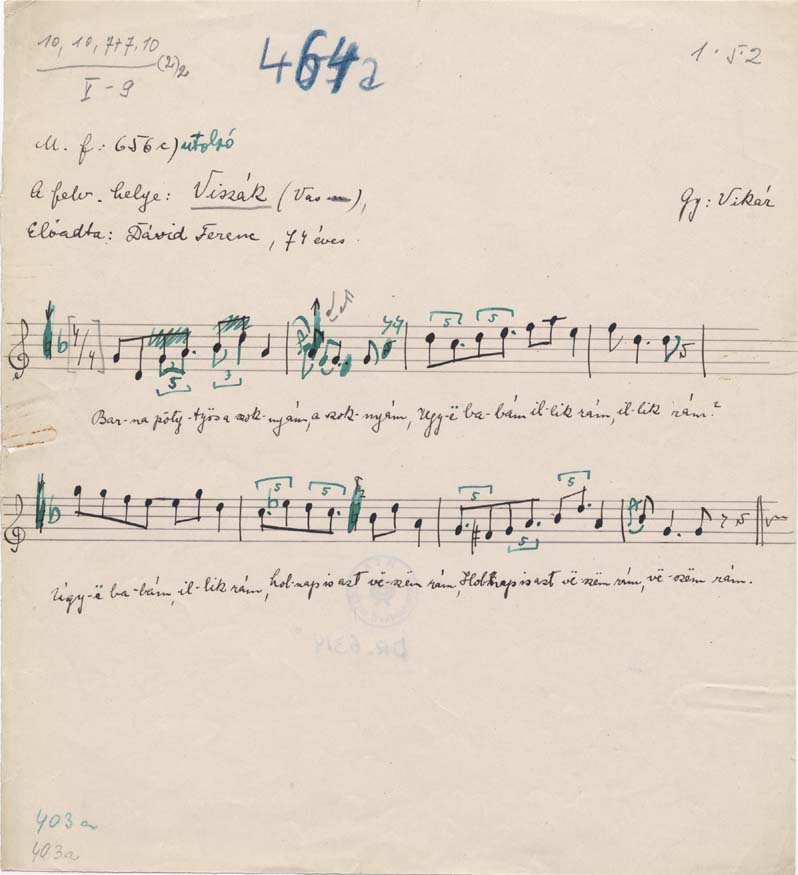 10, 10, 7+7, 10 (2)2
V - 9
464a
1. 5. 2
M. f: 656c) utolsó
A felv. helye: Viszák (Vas m),
Gy: Vikár
Előadta: Dávid Ferenc, 74 éves.
4/4
5
3
5 5
Bar-na pöty-työs a szok-nyám, a szok-nyám, Ugy-ë ba-bám il-lik rám, il-lik rám?
5 5
5 5
5
Úgy-ë ba-bám, il-lik rám, hol-nap is azt vë-szëm rám, Hol-nap is azt vë-szëm rám, vë-szëm rám.
403a
403a